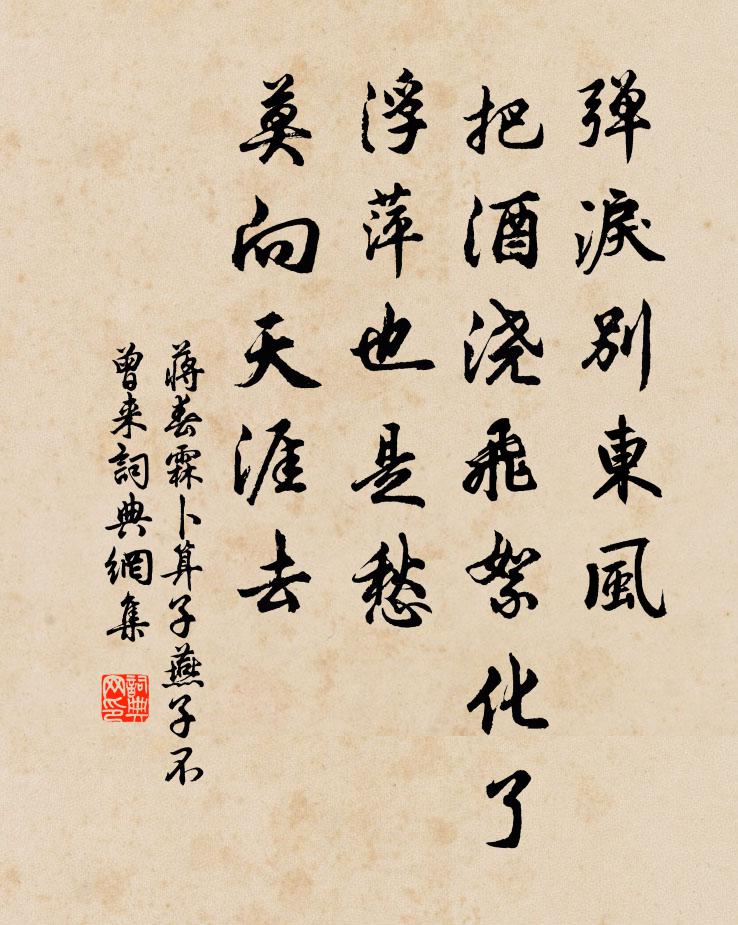 弹淚别東風
把酒浇飛絮化了
浮萍也是愁
莫向天涯去
蒋春霖卜算子燕子不
曾来詞典網集
詞典
网印